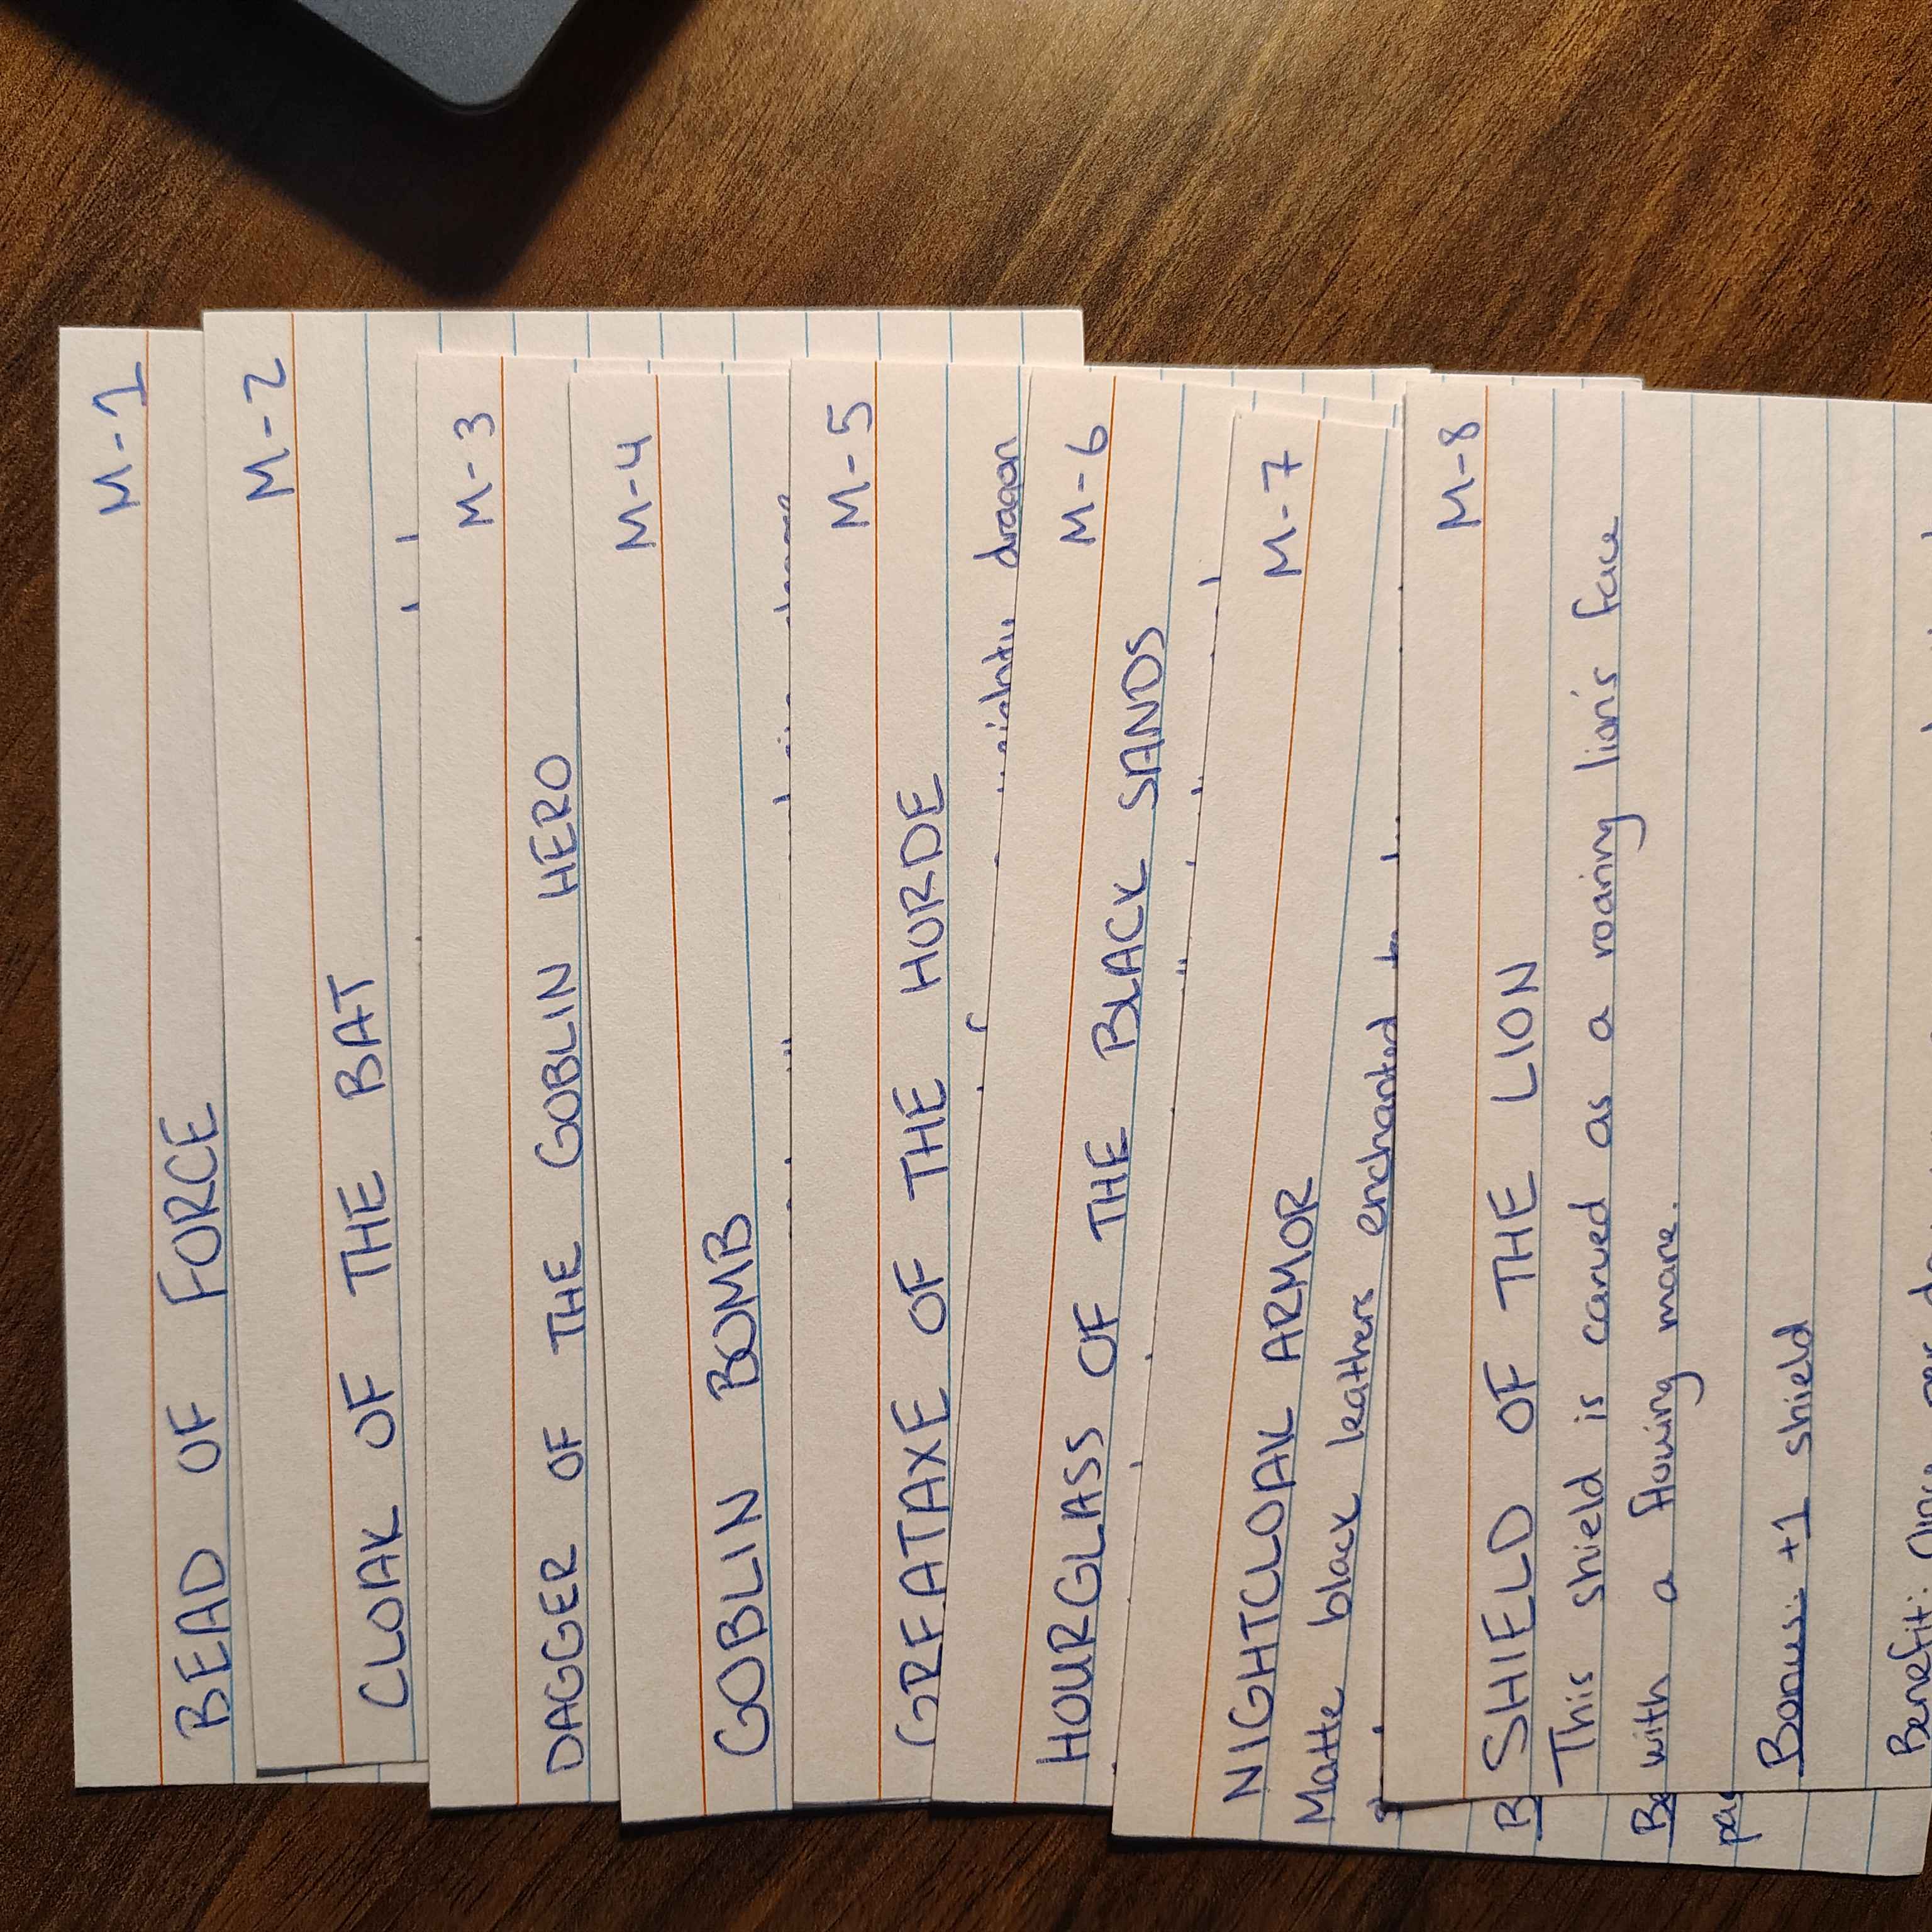 M-1
BEAD OF FORCE
M-2
CLOAK OF THE BAT
M-3
DAGGER OF THE GOBLIN HERO
M-4
GOBLIN BOMB
M-5
GREATAXE OF THE HORDE
dragon
M-6
HOURGLASS OF THE BLACK SANDS
M-7
NIGHTCLOAK ARMOR
Matte black leathers enchanted
M-8
SHIELD OF THE LION
This shield is carved as a roaring lion's face
with a flowing mane.
Bonus: +1 shield
Benefit: Once per